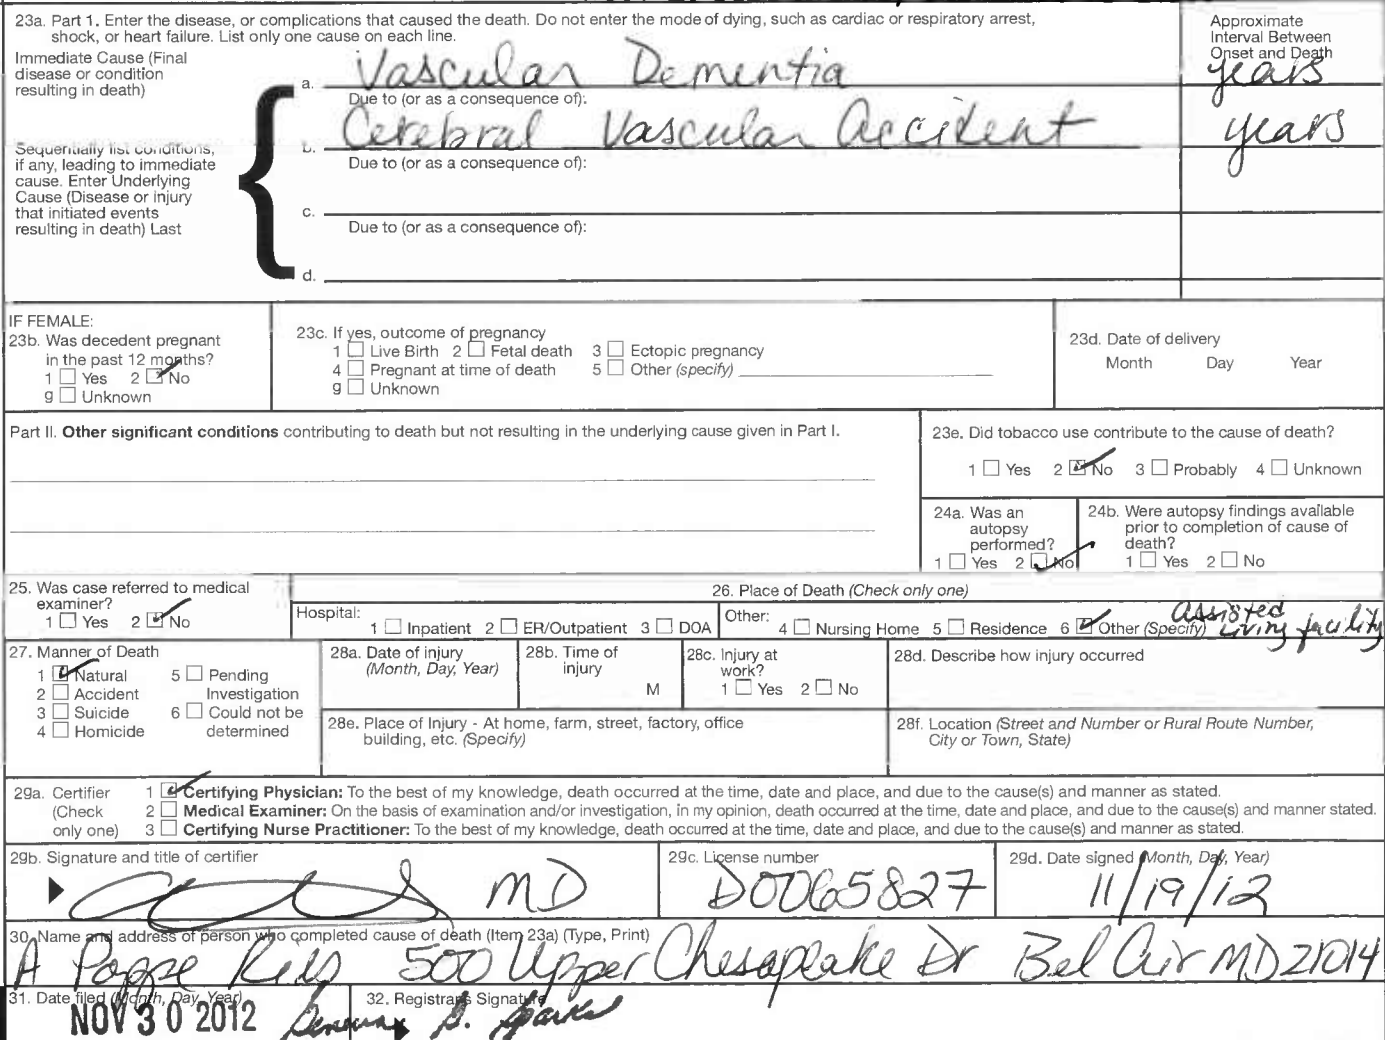 23a. Part 1. Enter the disease, or complications that caused the death. Do not enter the mode of dying, such as cardiac or respiratory arrest,
shock, or heart failure. List only one cause on each line.
Approximate
Interval Between
Onset and Death
Immediate Cause (Final
disease or condition
resulting in death)
a. Vascular Dementia years
Due to (or as a consequence of):
b. Cerebral Vascular Accident years
Sequentially list conditions,
if any, leading to immediate
cause. Enter Underlying
Cause (Disease or injury
that initiated events
resulting in death) Last
Due to (or as a consequence of):
c.
Due to (or as a consequence of):
d.
IF FEMALE:
23b. Was decedent pregnant
in the past 12 months?
1 Yes 2 No
9 Unknown
23c. If yes, outcome of pregnancy
1 Live Birth 2 Fetal death 3 Ectopic pregnancy
4 Pregnant at time of death 5 Other (specify)
9 Unknown
23d. Date of delivery
Month Day Year
Part II. Other significant conditions contributing to death but not resulting in the underlying cause given in Part I.
23e. Did tobacco use contribute to the cause of death?
1 Yes 2 No 3 Probably 4 Unknown
24a. Was an
autopsy
performed?
1 Yes 2 No
24b. Were autopsy findings available
prior to completion of cause of
death?
1 Yes 2 No
25. Was case referred to medical
examiner?
1 Yes 2 No
26. Place of Death (Check only one)
Hospital:
1 Inpatient 2 ER/Outpatient 3 DOA
Other:
4 Nursing Home 5 Residence 6 Other (Specify) Assisted
Living facility
27. Manner of Death
1 Natural 5 Pending
2 Accident Investigation
3 Suicide 6 Could not be
4 Homicide determined
28a. Date of injury
(Month, Day, Year)
28b. Time of
injury
M
28c. Injury at
work?
1 Yes 2 No
28d. Describe how injury occurred
28e. Place of Injury - At home, farm, street, factory, office
building, etc. (Specify)
28f. Location (Street and Number or Rural Route Number,
City or Town, State)
29a. Certifier
(Check
only one)
1 Certifying Physician: To the best of my knowledge, death occurred at the time, date and place, and due to the cause(s) and manner as stated.
2 Medical Examiner: On the basis of examination and/or investigation, in my opinion, death occurred at the time, date and place, and due to the cause(s) and manner stated.
3 Certifying Nurse Practitioner: To the best of my knowledge, death occurred at the time, date and place, and due to the cause(s) and manner as stated.
29b. Signature and title of certifier
MD
29c. License number
D0065827
29d. Date signed (Month, Day, Year)
11/19/12
30. Name and address of person who completed cause of death (Item 23a) (Type, Print)
A 500 Upper Chesapeake Dr Bel Air MD 21014
31. Date filed (Month, Day, Year)
NOV 30 2012
32. Registrars Signature
S. Sparks